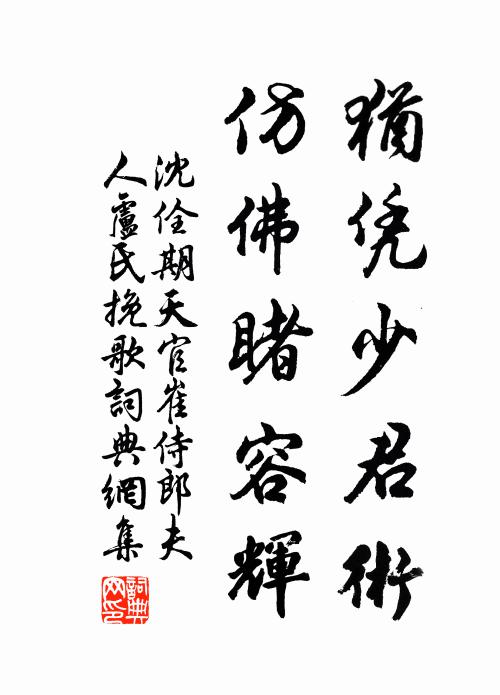 猶凭少君術
仿佛睹容輝
沈佺期天官崔侍郎夫
人盧氏挽歌詞典網集
詞典網印